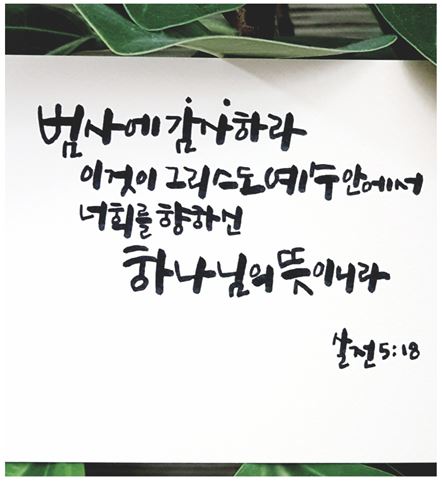 범사에 감사하라
이것이 그리스도 예수 안에서
너희를 향하신
하나님의 뜻이니라
살전 5:18